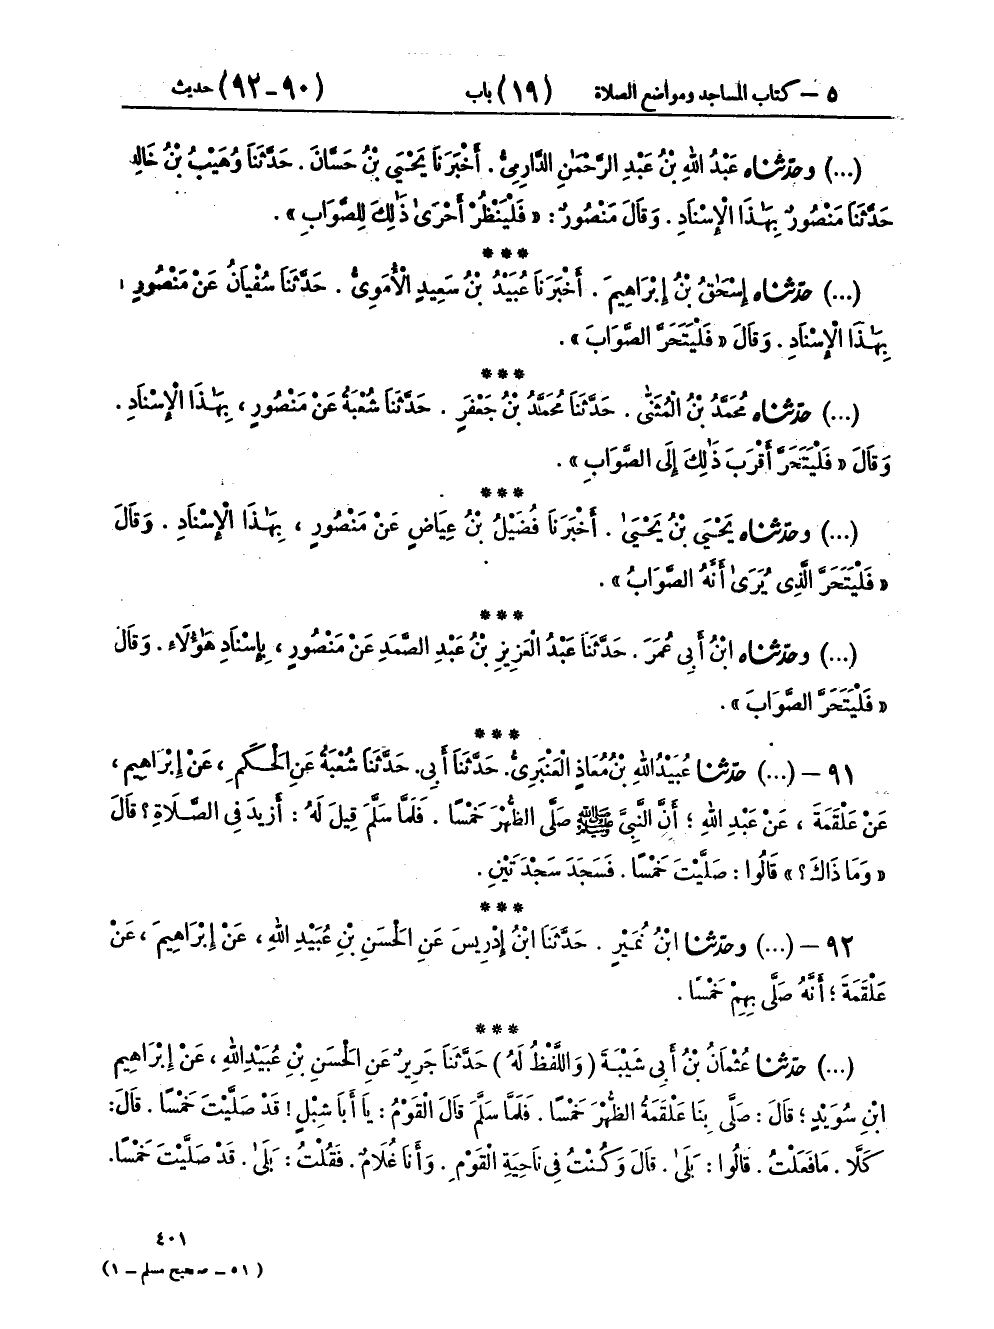 ٥ – كتاب المساجد ومواضع الصلاة (١٩) باب (٩٠-٩٢) حديث
(...) وحدّثناه عَبْدُ اللهِ بْنُ عَبْدِ الرَّحْمَٰنِ الدَّارِمِيُّ . أَخْبَرَنَا يَحْيَى بْنُ حَسَّانَ . حَدَّثَنَا وُهَيْبُ بْنُ خَالِدٍ
حَدَّثَنَا مَنْصُورٌ بِهَٰذَا الْإِسْنَادِ . وَقَالَ مَنْصُورٌ : « فَلْيَنْظُرْ أَحْرَىٰ ذَٰلِكَ لِلصَّوَابِ » .
***
(...) حدّثناه إِسْحَٰقُ بْنُ إِبْرَاهِيمَ . أَخْبَرَنَا عُبَيْدُ بْنُ سَعِيدٍ الْأُمَوِيُّ . حَدَّثَنَا سُفْيَانُ عَنْ مَنْصُورٍ ،
بِهَٰذَا الْإِسْنَادِ . وَقَالَ « فَلْيَتَحَرَّ الصَّوَابَ » .
***
(...) حدّثناه مُحَمَّدُ بْنُ الْمُثَنَّىٰ . حَدَّثَنَا مُحَمَّدُ بْنُ جَعْفَرٍ . حَدَّثَنَا شُعْبَةُ عَنْ مَنْصُورٍ ، بِهَٰذَا الْإِسْنَادِ .
وَقَالَ « فَلْيَتَحَرَّ أَقْرَبَ ذَٰلِكَ إِلَى الصَّوَابِ » .
***
(...) وحدّثناه يَحْيَى بْنُ يَحْيَىٰ . أَخْبَرَنَا فُضَيْلُ بْنُ عِيَاضٍ عَنْ مَنْصُورٍ ، بِهَٰذَا الْإِسْنَادِ . وَقَالَ
« فَلْيَتَحَرَّ الَّذِي يُرَىٰ أَنَّهُ الصَّوَابُ » .
***
(...) وحدّثناه ابْنُ أَبِي عُمَرَ . حَدَّثَنَا عَبْدُ الْعَزِيزِ بْنُ عَبْدِ الصَّمَدِ عَنْ مَنْصُورٍ ، بِإِسْنَادِ هَٰؤُلَاءِ . وَقَالَ
« فَلْيَتَحَرَّ الصَّوَابَ » .
***
٩١ – (...) حدّثنا عُبَيْدُ اللهِ بْنُ مُعَاذٍ الْعَنْبَرِيُّ . حَدَّثَنَا أَبِي . حَدَّثَنَا شُعْبَةُ عَنِ الْحَكَمِ ، عَنْ إِبْرَاهِيمَ ،
عَنْ عَلْقَمَةَ ، عَنْ عَبْدِ اللهِ ؛ أَنَّ النَّبِيَّ ﷺ صَلَّى الظُّهْرَ خَمْسًا . فَلَمَّا سَلَّمَ قِيلَ لَهُ : أَزِيدَ فِي الصَّلَاةِ ؟ قَالَ
« وَمَا ذَاكَ ؟ » قَالُوا : صَلَّيْتَ خَمْسًا . فَسَجَدَ سَجْدَتَيْنِ .
***
٩٢ – (...) وحدّثنا ابْنُ نُمَيْرٍ . حَدَّثَنَا ابْنُ إِدْرِيسَ عَنِ الْحَسَنِ بْنِ عُبَيْدِ اللهِ ، عَنْ إِبْرَاهِيمَ ، عَنْ
عَلْقَمَةَ ؛ أَنَّهُ صَلَّى بِهِمْ خَمْسًا .
***
(...) حدّثنا عُثْمَانُ بْنُ أَبِي شَيْبَةَ ( وَاللَّفْظُ لَهُ ) حَدَّثَنَا جَرِيرٌ عَنِ الْحَسَنِ بْنِ عُبَيْدِ اللهِ ، عَنْ إِبْرَاهِيمَ
ابْنِ سُوَيْدٍ ؛ قَالَ : صَلَّى بِنَا عَلْقَمَةُ الظُّهْرَ خَمْسًا . فَلَمَّا سَلَّمَ قَالَ الْقَوْمُ : يَا أَبَا شِبْلٍ ! قَدْ صَلَّيْتَ خَمْسًا . قَالَ :
كَلَّا . مَا فَعَلْتُ . قَالُوا : بَلَىٰ . قَالَ وَكُنْتُ فِي نَاحِيَةِ الْقَوْمِ . وَأَنَا غُلَامٌ . فَقُلْتُ : بَلَىٰ . قَدْ صَلَّيْتَ خَمْسًا .
٤٠١
( ٥١ – صحيح مسلم – ١ )